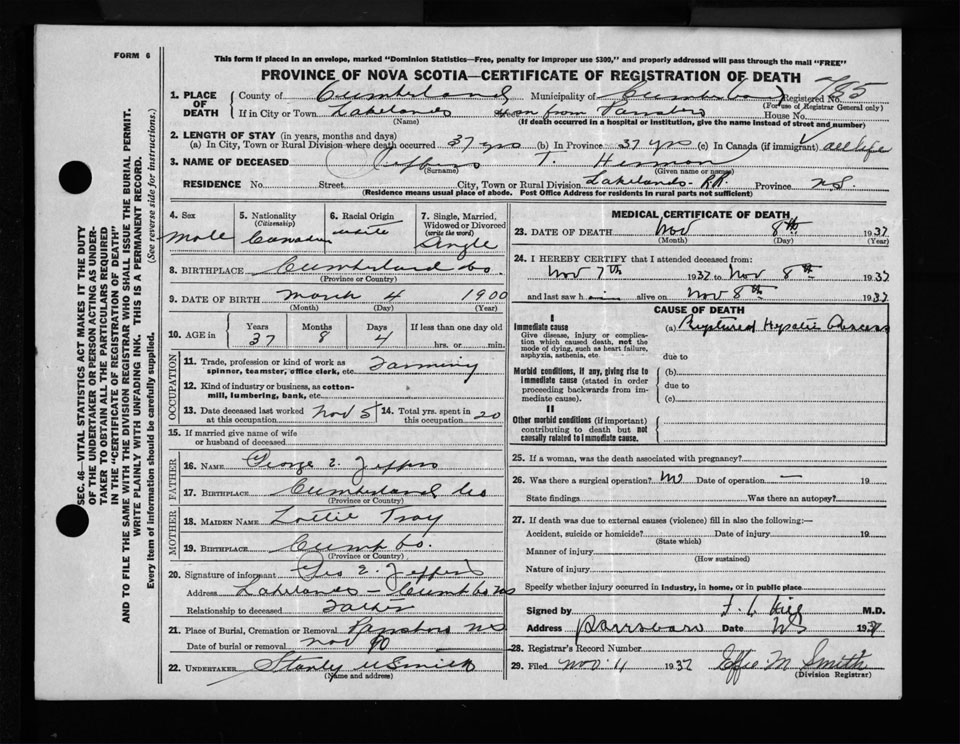 FORM 6
This form if placed in an envelope, marked "Dominion Statistics—Free, penalty for improper use $300," and properly addressed will pass through the mail "FREE"
PROVINCE OF NOVA SCOTIA—CERTIFICATE OF REGISTRATION OF DEATH
1. PLACE OF DEATH County of Cumberland Municipality of Cumberland Registered No. 785
(For use of Registrar General only)
If in City or Town Lakelands Street from House No.
(Name) (If death occurred in a hospital or institution, give the name instead of street and number)
2. LENGTH OF STAY (in years, months and days)
(a) In City, Town or Rural Division where death occurred 37 yrs (b) In Province 37 yrs (c) In Canada (if immigrant) all life
3. NAME OF DECEASED Jeffers T. Herman
(Surname) (Given name or names)
RESIDENCE No. Street City, Town or Rural Division Lakelands R.R. Province N.S.
(Residence means usual place of abode. Post Office Address for residents in rural parts not sufficient)
4. Sex Male
5. Nationality (Citizenship) Canadian
6. Racial Origin white
7. Single, Married, Widowed or Divorced (write the word) Single
8. BIRTHPLACE Cumberland Co.
(Province or Country)
9. DATE OF BIRTH March 4 1900
(Month) (Day) (Year)
10. AGE in Years 37 Months 8 Days 4 If less than one day old hrs. or min.
OCCUPATION
11. Trade, profession or kind of work as spinner, teamster, office clerk, etc. Farming
12. Kind of industry or business, as cotton-mill, lumbering, bank, etc.
13. Date deceased last worked at this occupation Nov 5 14. Total yrs. spent in this occupation 20
15. If married give name of wife or husband of deceased
FATHER
16. NAME George E. Jeffers
17. BIRTHPLACE Cumberland Co
(Province or Country)
MOTHER
18. MAIDEN NAME Troy
19. BIRTHPLACE Cumb Co.
(Province or Country)
20. Signature of informant Geo E. Jeffers
Address Lakelands - Cumb Co NS
Relationship to deceased Father
21. Place of Burial, Cremation or Removal Parrsboro NS
Date of burial or removal Nov 10
22. UNDERTAKER Smith
(Name and address)
MEDICAL CERTIFICATE OF DEATH
23. DATE OF DEATH Nov 8th 1937
(Month) (Day) (Year)
24. I HEREBY CERTIFY that I attended deceased from:
Nov 7th 1937 to Nov 8th 1937
and last saw h im alive on Nov 8th 1937
CAUSE OF DEATH
I
Immediate cause
Give disease, injury or complication which caused death, not the mode of dying, such as heart failure, asphyxia, asthenia, etc.
(a) Ruptured Hepatic
due to
Morbid conditions, if any, giving rise to immediate cause (stated in order proceeding backwards from immediate cause).
(b)
due to
(c)
II
Other morbid conditions (if important) contributing to death but not causally related to immediate cause.
25. If a woman, was the death associated with pregnancy?
26. Was there a surgical operation? No Date of operation — 19
State findings Was there an autopsy?
27. If death was due to external causes (violence) fill in also the following:—
Accident, suicide or homicide? Date of injury 19
(State which)
Manner of injury
(How sustained)
Nature of injury
Specify whether injury occurred in industry, in home, or in public place
Signed by M.D.
Address Parrsboro Date NS 1937
28. Registrar's Record Number
29. Filed Nov. 11 1937 Effie M Smith
(Division Registrar)
SEC. 46—VITAL STATISTICS ACT MAKES IT THE DUTY
OF THE UNDERTAKER OR PERSON ACTING AS UNDER-
TAKER TO OBTAIN ALL THE PARTICULARS REQUIRED
IN THE "CERTIFICATE OF REGISTRATION OF DEATH"
AND TO FILE THE SAME WITH THE DIVISION REGISTRAR WHO SHALL ISSUE THE BURIAL PERMIT.
WRITE PLAINLY WITH UNFADING INK. THIS IS A PERMANENT RECORD.
Every item of information should be carefully supplied. (See reverse side for instructions.)